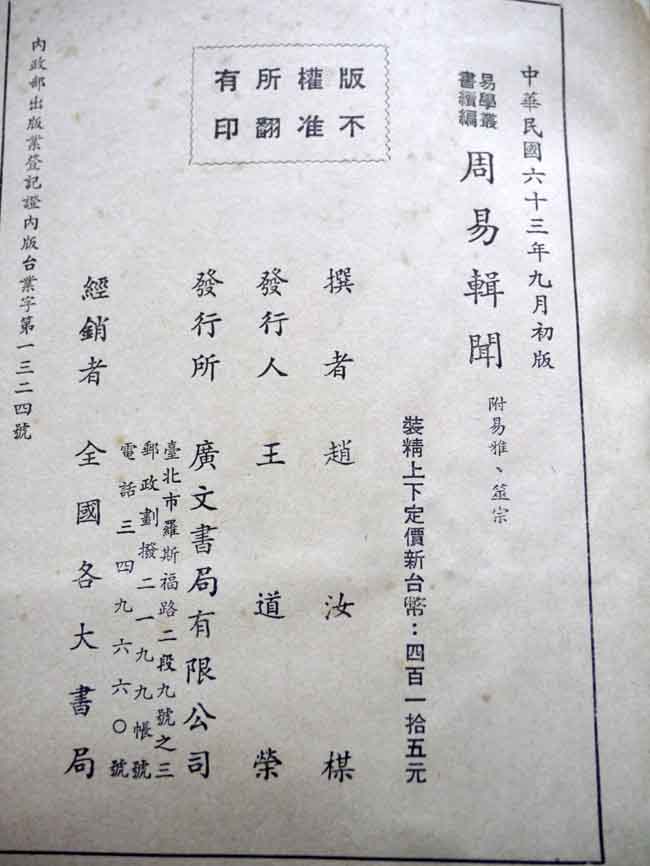 中華民國六十三年九月初版
易學叢
書續編
周易輯聞
附易雅、筮宗
裝精上下定價新台幣：四百一拾五元
版權所有
不准翻印
撰者 趙汝楳
發行人 王道榮
發行所 廣文書局有限公司
臺北市羅斯福路二段九號之三
郵政劃撥二一九九帳號
電話三四九六六〇號
經銷者 全國各大書局
內政部出版業登記證內版台業字第一三二四號